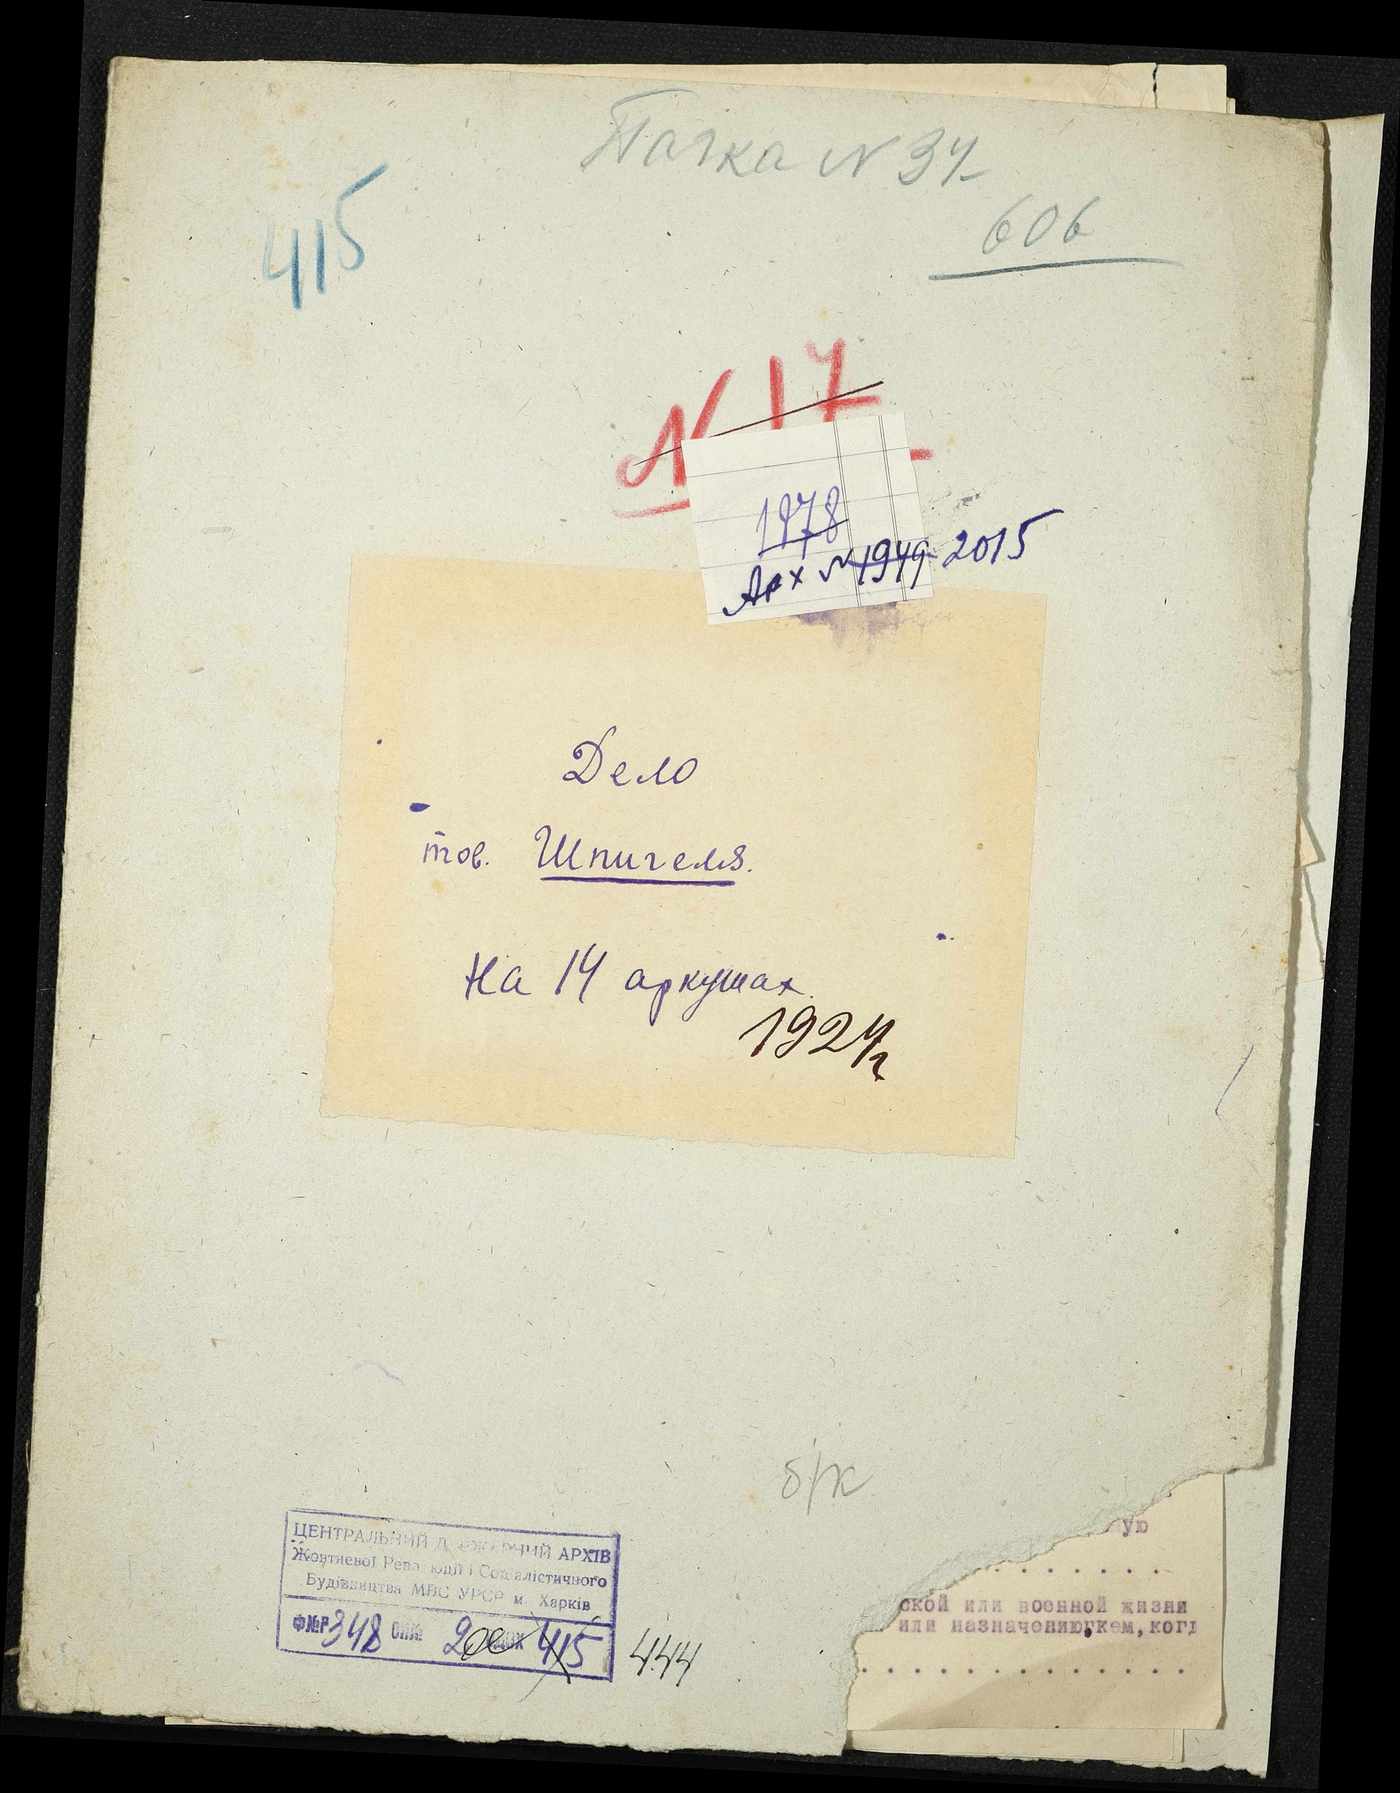 Пачка № 34
415
606
№ 17
1978
Арх № 1949 2015
Дело
тов. Шпигеля.
На 14 аркушах
1924 г
б/к
ЦЕНТРАЛЬНИЙ ДЕРЖАВНИЙ АРХІВ
Жовтневої Революції і Соціалістичного
Будівництва МВС УРСР м. Харків
Ф№Р 348 ОП№ 2 415 444
ую
ской или военной жизни
или назначению, кем, когд